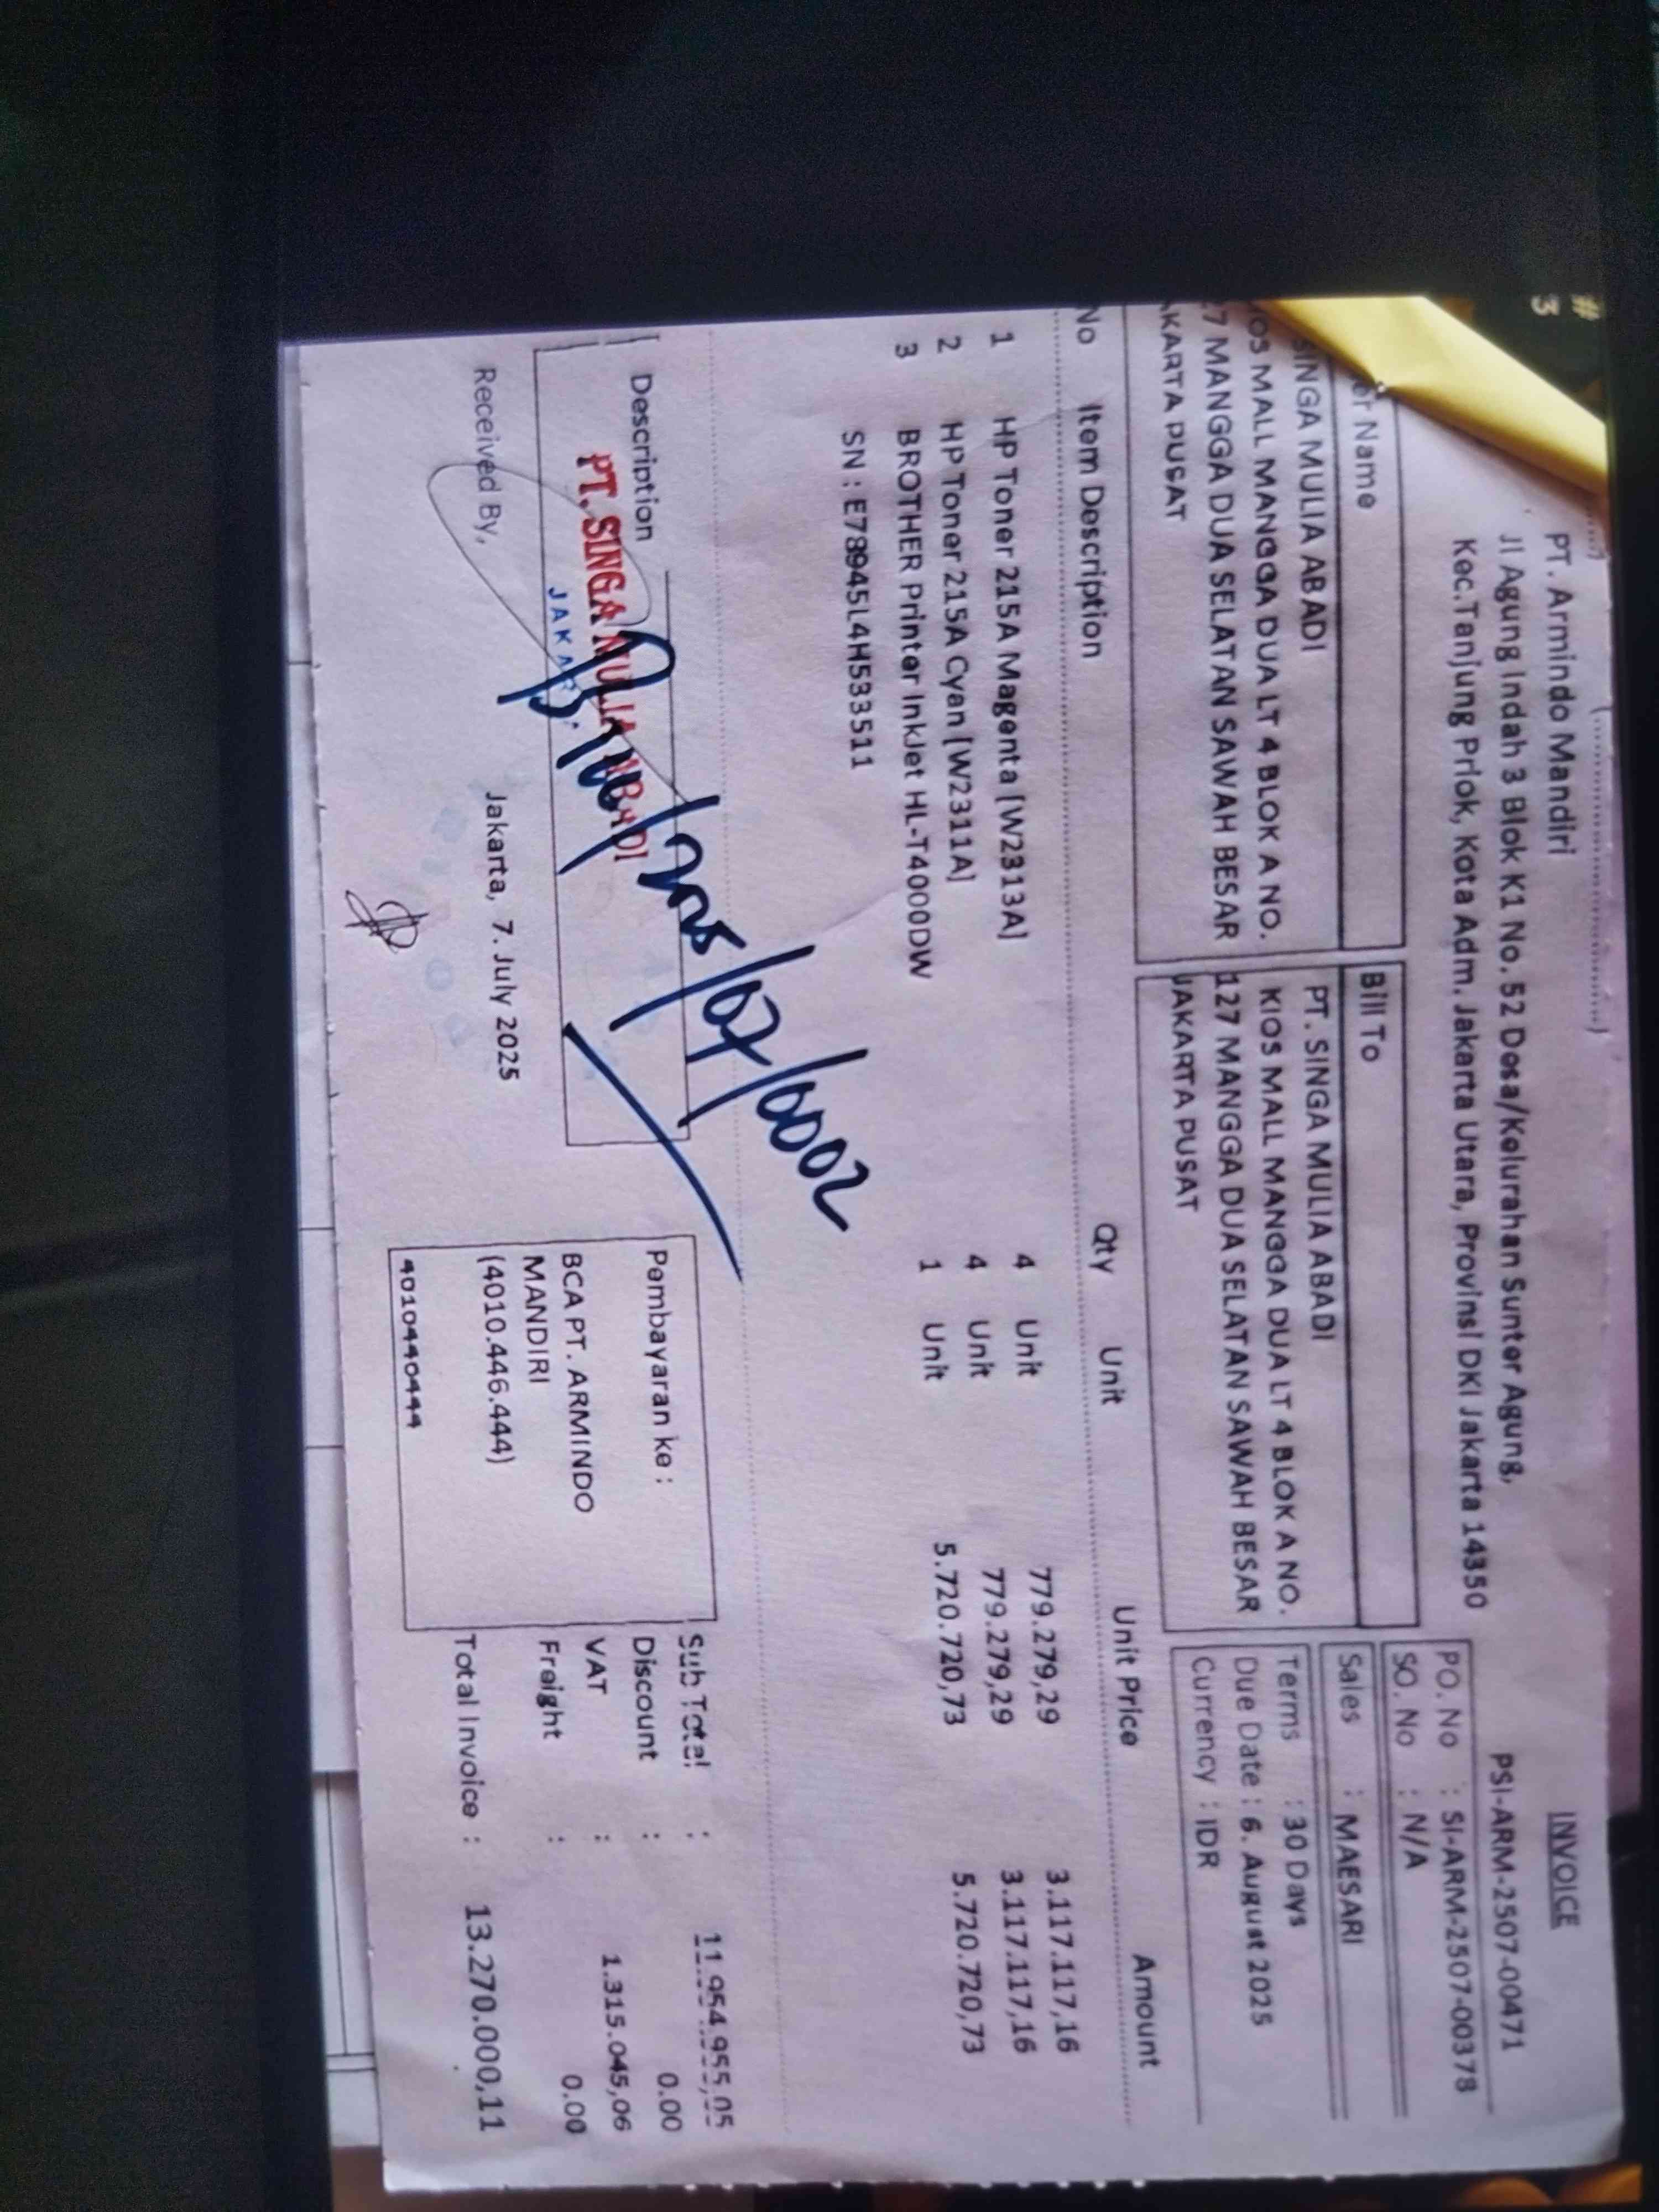 #
3
PT. Armindo Mandiri
Jl Agung Indah 3 Blok K1 No. 52 Desa/Kelurahan Sunter Agung,
Kec.Tanjung Priok, Kota Adm. Jakarta Utara, Provinsi DKI Jakarta 14350
INVOICE
PSI-ARM-2507-00471
PO. No : SI-ARM-2507-00378
SO. No : N/A
Sales : MAESARI
Terms : 30 Days
Due Date : 6. August 2025
Currency : IDR
er Name
SINGA MULIA ABADI
IOS MALL MANGGA DUA LT 4 BLOK A NO.
27 MANGGA DUA SELATAN SAWAH BESAR
AKARTA PUSAT
Bill To
PT. SINGA MULIA ABADI
KIOS MALL MANGGA DUA LT 4 BLOK A NO.
127 MANGGA DUA SELATAN SAWAH BESAR
JAKARTA PUSAT
No Item Description Qty Unit Unit Price Amount
1 HP Toner 215A Magenta [W2313A] 4 Unit 779.279,29 3.117.117,16
2 HP Toner 215A Cyan [W2311A] 4 Unit 779.279,29 3.117.117,16
3 BROTHER Printer InkJet HL-T4000DW 1 Unit 5.720.720,73 5.720.720,73
SN : E78945L4H533511
Description
PT. SINGA MULIA ABADI
/2025/07/0002
Received By,
Jakarta, 7. July 2025
Pembayaran ke :
BCA PT. ARMINDO
MANDIRI
(4010.446.444)
Sub Total : 11.954.955,05
Discount : 0.00
VAT : 1.315.045,06
Freight : 0.00
Total Invoice : 13.270.000,11